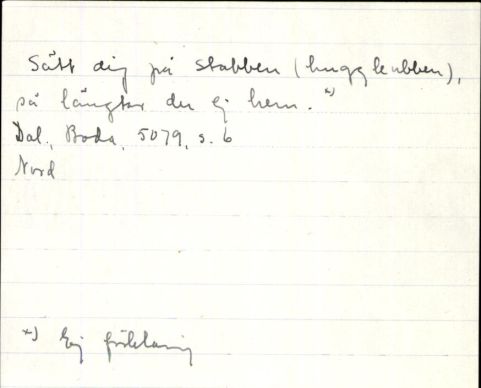 Sätt dig på stabben (huggkubben),
så längtar du ej hem. *)
Dal., Boda, 5079, s. 6
Nord
*) Ej förklaring